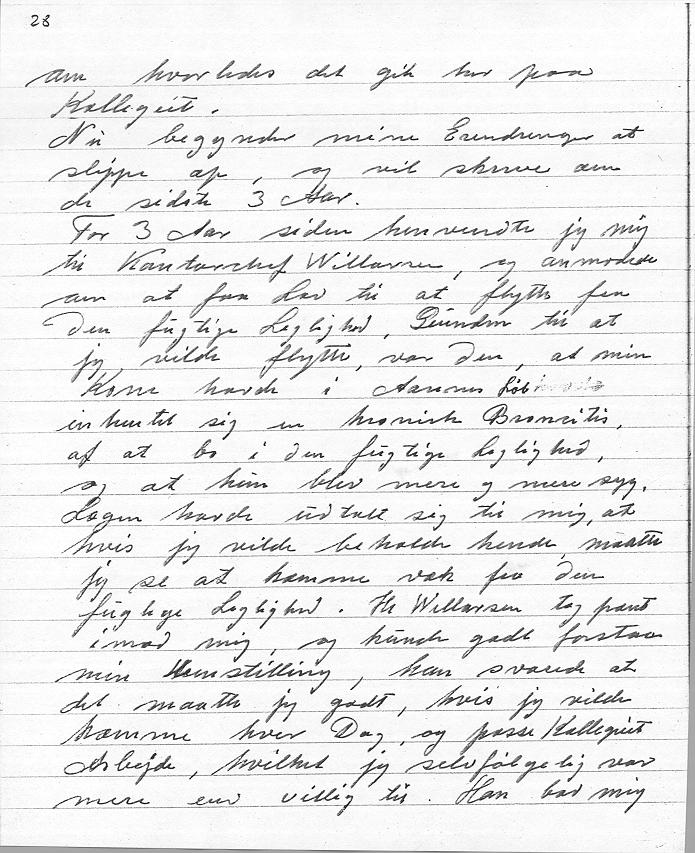 28
om hvorledes det gik her paa
Kollegiet.
Nu begynder mine Erendrenger at
slippe op, og vil skrive om
de sidste 3 Aar.
For 3 Aar siden henvendte jeg mig
til Kontorchef Willarsen, og anmodede
om at faa Lov til at flytte fra
den fugtige Leglighed, Grunden til at
jeg vilde flytte, var den, at min
Kone havde i Aarenes Løb
indhentet sig en kronisk Broncitis,
af at bo i den fugtige Leglighed,
og at hun blev mere og mere syg.
Lægen havde udtalt sig til mig, at
hvis jeg vilde beholde hende, maatte
jeg se at komme væk fra den
fugtige Leglighed. Hr Willarsen tog pænt
imod mig, og kunde godt forstaa
min Henstilling, han svarede at
det maatte jeg godt, hvis jeg vilde
komme hver Dag, og passe Kollegiet
Arbejde, hvilket jeg selvfølgelig var
mere end villig til. Han bad mig